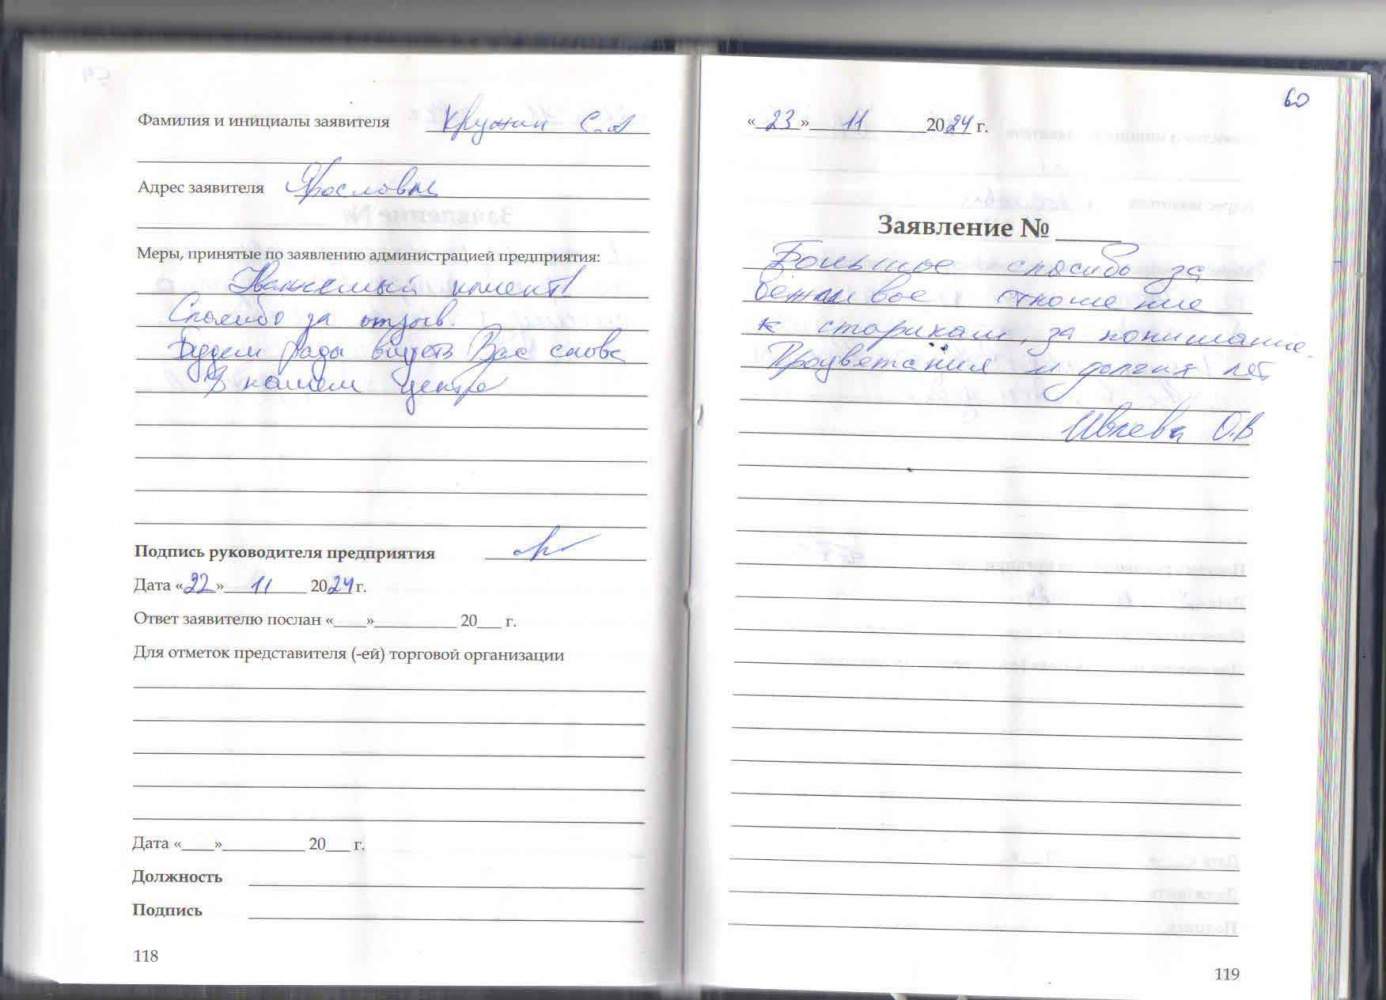 Фамилия и инициалы заявителя Кружин С.А
Адрес заявителя Ярославль
Меры, принятые по заявлению администрацией предприятия:
Уважаемый клиент!
Спасибо за отзыв.
Будем рады видеть Вас снова
в нашем центре
Подпись руководителя предприятия
Дата «22» 11 2024 г.
Ответ заявителю послан «____»__________ 20___ г.
Для отметок представителя (-ей) торговой организации
Дата «____»__________ 20___ г.
Должность
Подпись
118
60
«23» 11 2024 г.
Заявление № _____
Большое спасибо за
отношение
к старикам, за понимание.
Процветания и долгих лет
Ивлева О.В
119